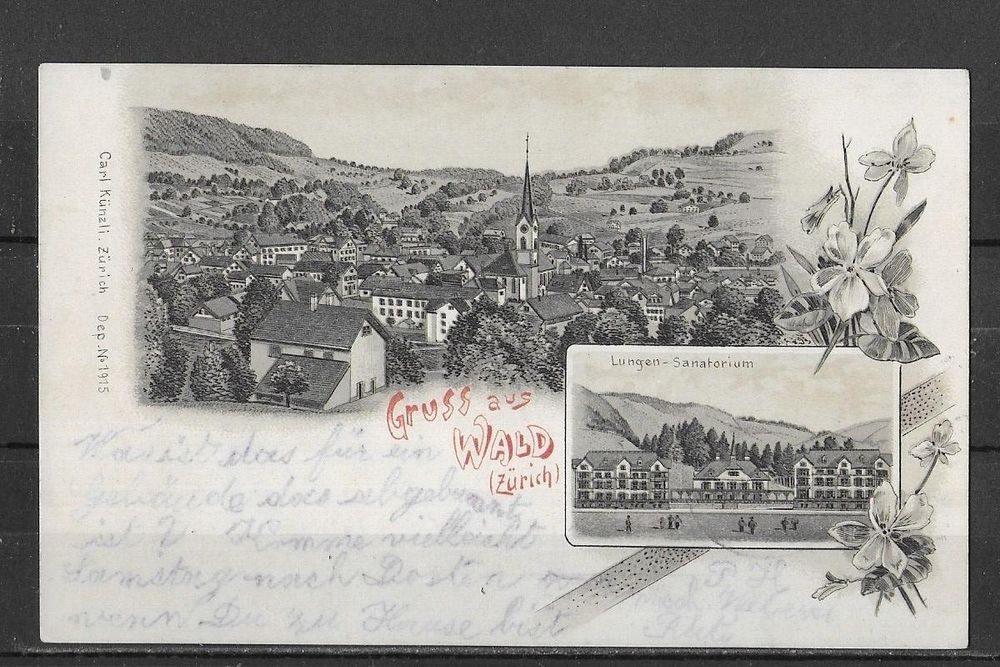 Carl Künzli. Zürich Dep. No 1915
Lungen-Sanatorium
Gruss aus
WALD
(Zürich)
Was ist das für ein
das abgebrannt
ist? Komme vielleicht
Samstag nach
wenn Du zu Hause bist